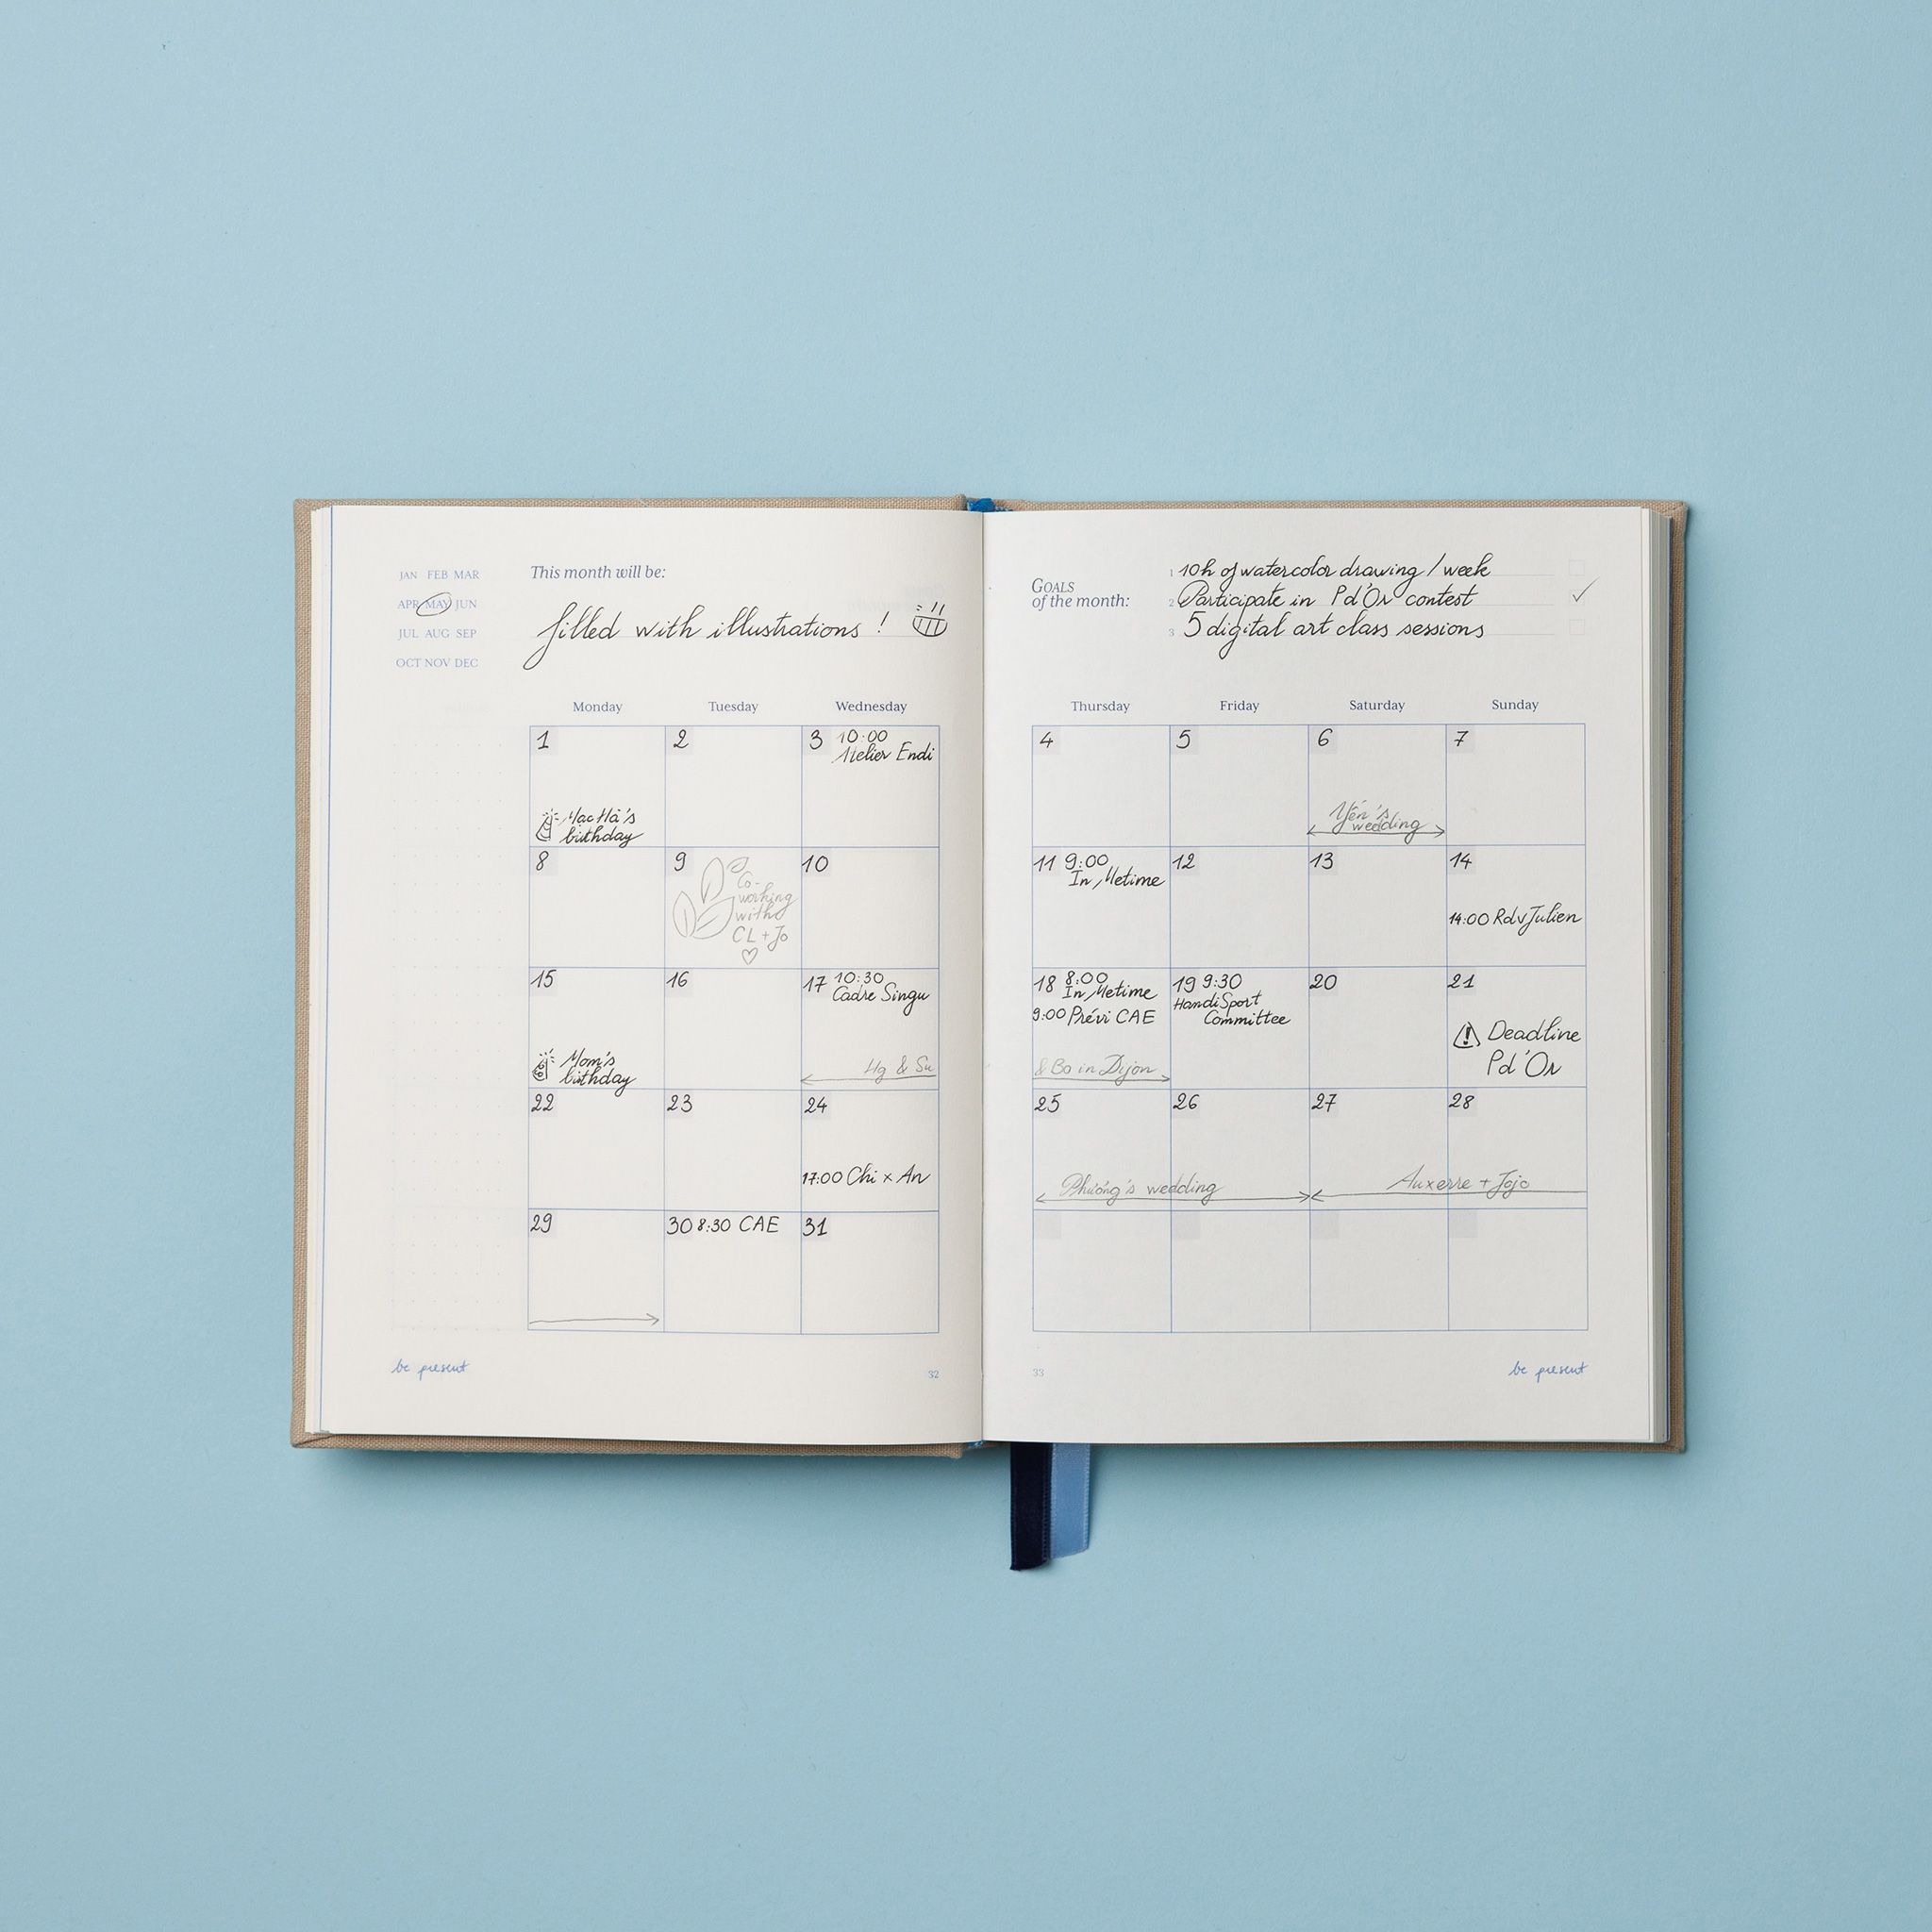 JAN FEB MAR
APR MAY JUN
JUL AUG SEP
OCT NOV DEC
This month will be:
filled with illustrations !
Monday Tuesday Wednesday
1 2 3 10:00
Atelier Endi
Mac Hà's
birthday
8 9 10
Co-
working
with
CL + Jo
15 16 17 10:30
Cadre Singu
Mom's
birthday
Hg & Su
22 23 24
17:00 Chi x An
29 30 8:30 CAE 31
be present
32
GOALS
of the month:
1 10h of watercolor drawing / week
2 Participate in Pd'Or contest
3 5 digital art class sessions
Thursday Friday Saturday Sunday
4 5 6 7
Yến's
wedding
11 9:00 12 13 14
In Metime
14:00 Rdv Julien
18 8:00 19 9:30 20 21
In Metime HandiSport
9:00 Prévi CAE Committee
Deadline
Pd'Or
& Bo in Dijon
25 26 27 28
Phương's wedding Auxerre + Jojo
33
be present